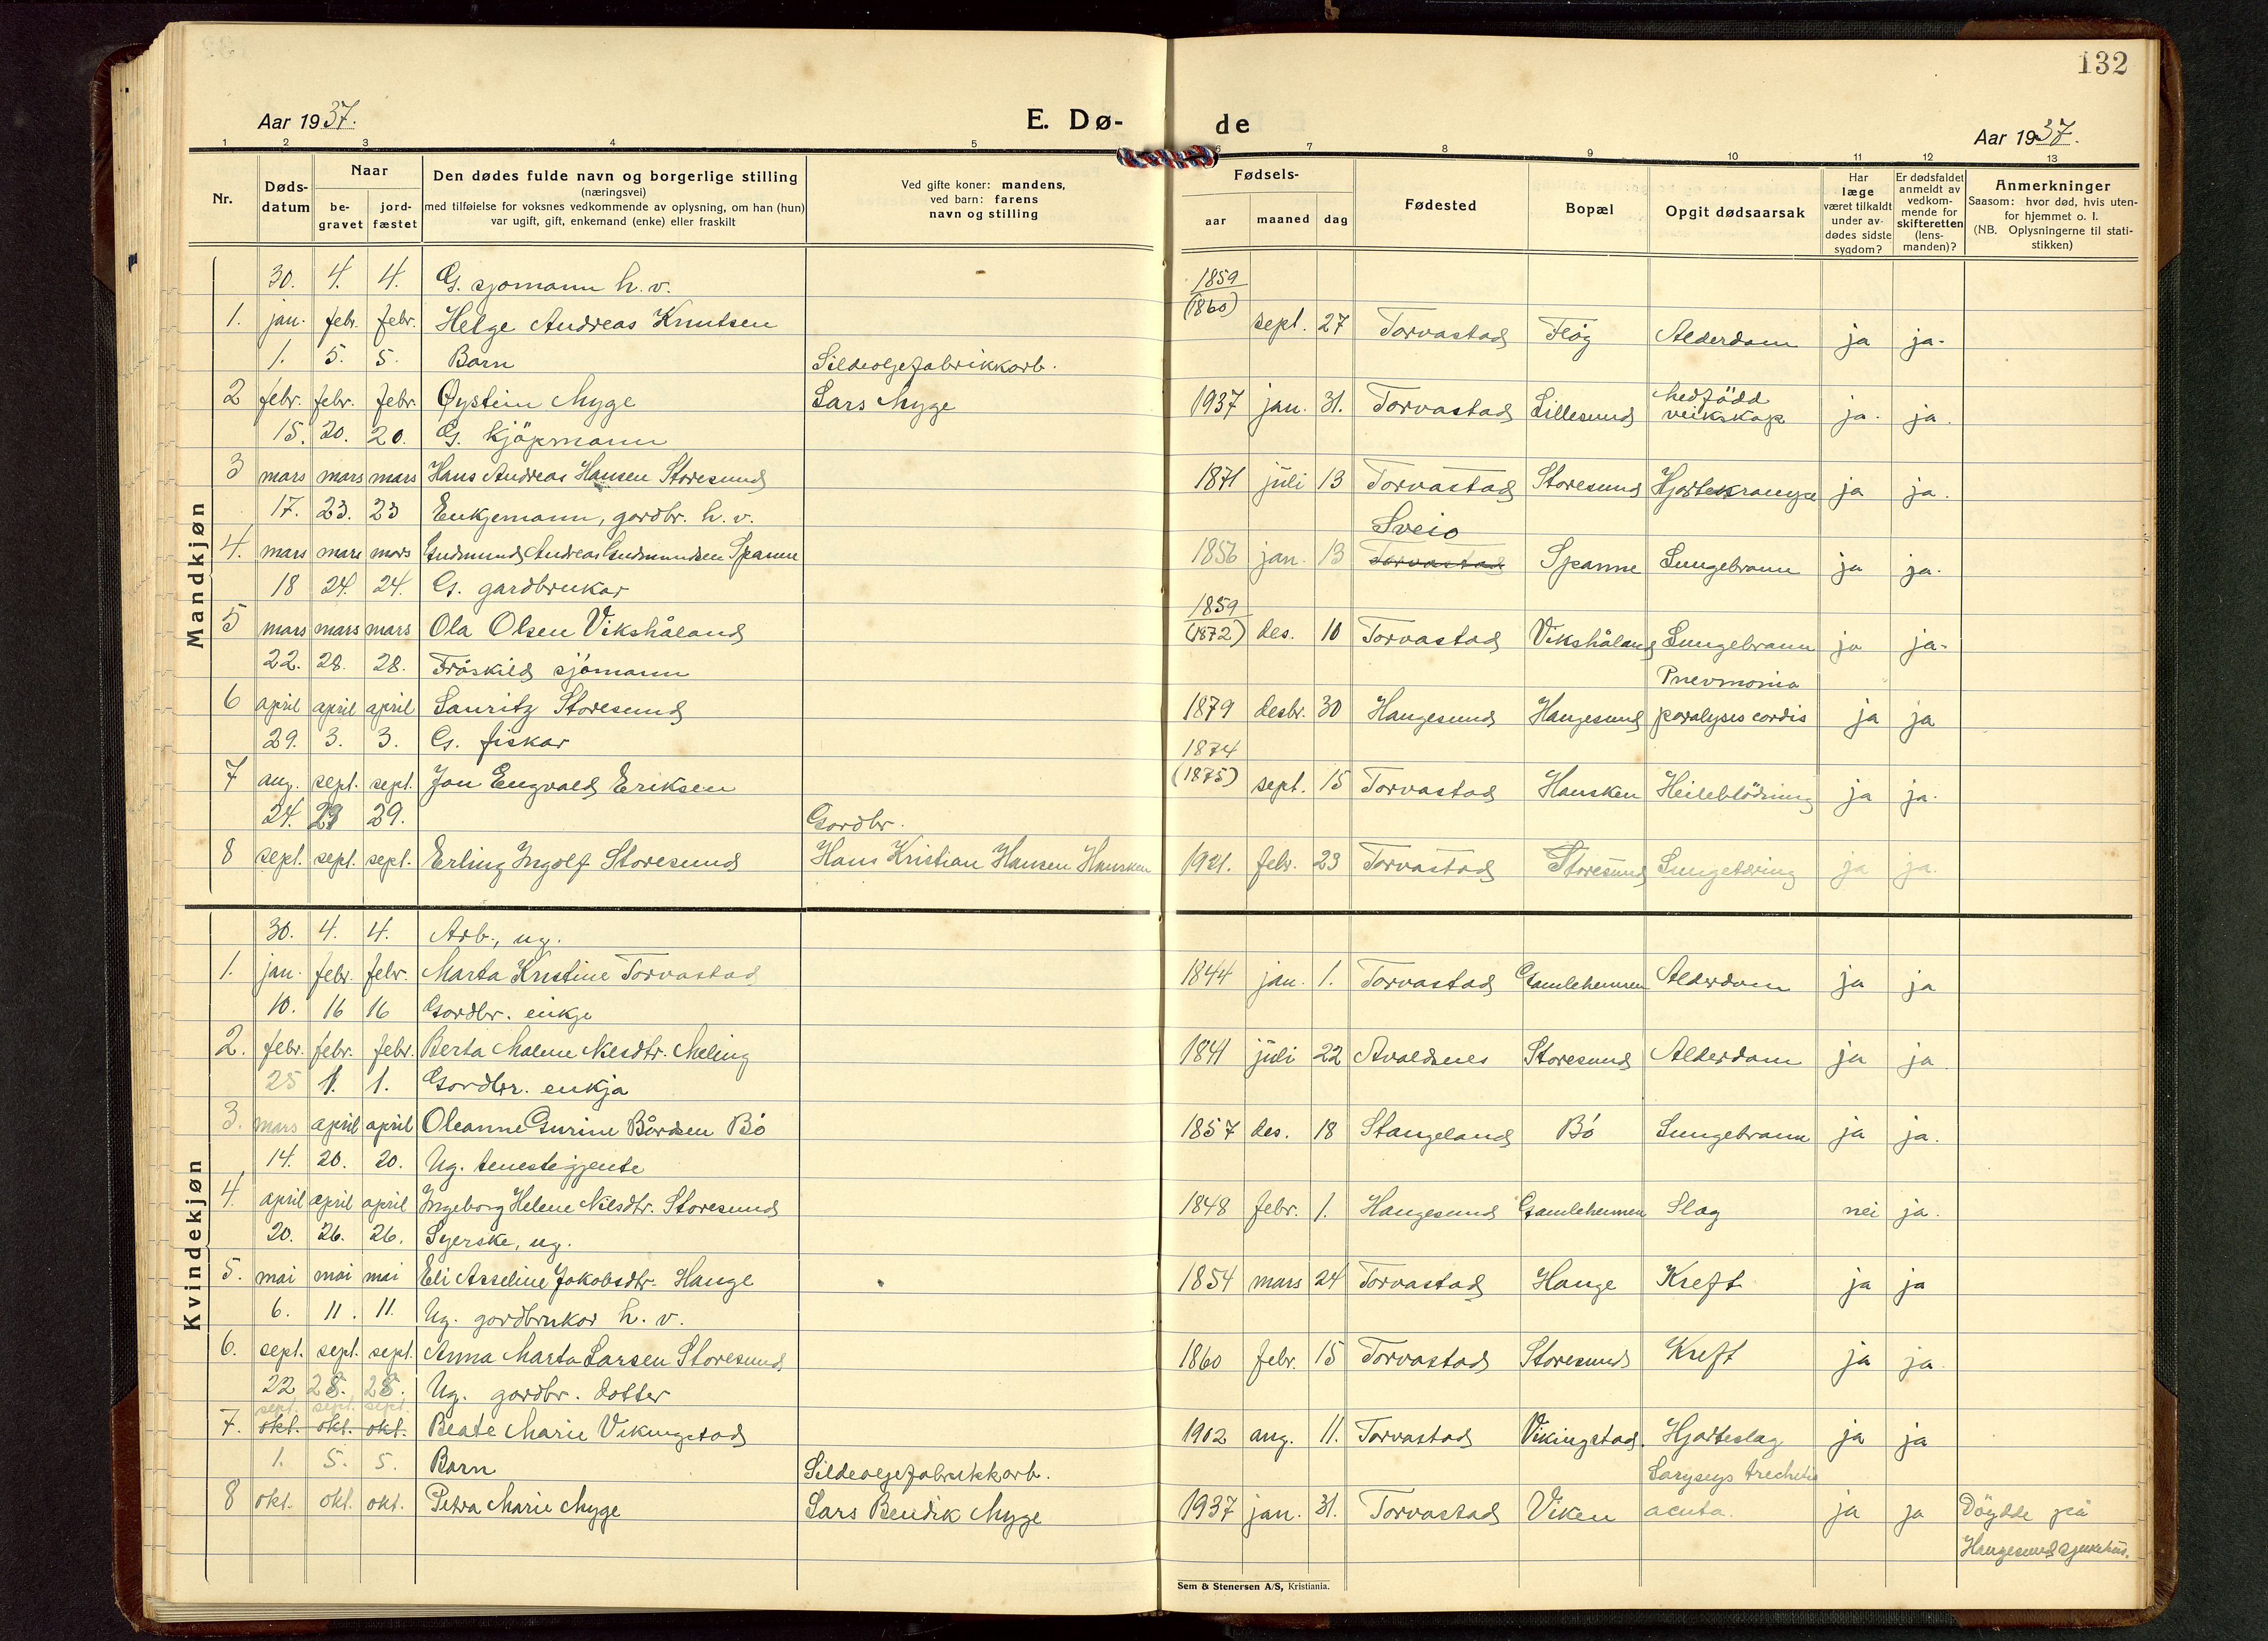 132
Aar 1937.
E. Dø-
de
Aar 1937.
1 2 3 4 5 6 7 8 9 10 11 12 13
Nr.
Døds-
datum
Naar
be-
gravet
jord-
fæstet
Den dødes fulde navn og borgerlige stilling
(næringsvei)
med tilføielse for voksnes vedkommende av oplysning, om han (hun)
var ugift, gift, enkemand (enke) eller fraskilt
Ved gifte koner: mandens,
ved barn: farens
navn og stilling
Fødsels-
aar maaned dag
Fødested
Bopæl
Opgit dødsaarsak
Har
læge
været tilkaldt
under av-
dødes sidste
sygdom?
Er dødsfaldet
anmeldt av
vedkom-
mende for
skifteretten
(lens-
manden)?
Anmerkninger
Saasom: hvor død, hvis uten-
for hjemmet o. l.
(NB. Oplysningerne til stati-
stikken)
Mandkjøn
30. 4. 4. G. sjømann h. v. 1859
1. jan. febr. febr. Helge Andreas Knutsen (1860) sept. 27 Torvastad Fløg Alderdom ja ja.
1. 5. 5. Barn Sildeoljefabrikkarb.
2 febr. febr. febr. Øystein Myge Lars Myge 1937 jan. 31. Torvastad Lillesund Medfødd veikskap ja. ja.
15. 20. 20. G. kjøpmann
3 mars mars mars Hans Andreas Hansen Storesund 1871 juli 13 Torvastad Storesund Hjartekrampe ja ja.
17. 23. 23 Enkjemann, gardbr. h. v. Sveio
4. mars mars mars Gudmund Andreas Gudmundsen Spanne 1856 jan. 13 Torvastad Spanne Lungebrann ja ja.
18 24. 24. G. gardbrukar 1859
5 mars mars mars Ola Olsen Vikshåland (1872) des. 10 Torvastad Vikshåland Lungebrann ja ja.
22. 28. 28. Fråskild sjømann Pnevmonia
6 april april april Lauritz Storesund 1879 desbr. 30 Haugesund Haugesund paralyses cordis ja ja
29. 3. 3. G. fiskar 1874
7 aug. sept. sept. Jon Engvald Eriksen (1875) sept. 15 Torvastad Hausken Heileblødning ja ja.
24. 29 29. Gardbr.
8 sept. sept. sept. Erling Ingolf Storesund Hans Kristian Hansen Hausken 1921. febr. 23 Torvastad Storesund Lungetæring ja ja.
Kvindekjøn
30. 4. 4. Arb., ug.
1. jan. febr. febr. Marta Kristine Torvastad 1844 jan. 1. Torvastad Gamleheimen Alderdom ja ja
10. 16 16 Gardbr. enkje
2. febr. febr. febr. Berta Malene Nilsdtr. Meling 1841 juli 22 Avaldsnes Storesund Alderdom ja ja.
25 1. 1. Gardbr. enkja
3. mars april april Oleanne Gurine Bårdsen Bø 1857 des. 18 Stangeland Bø Lungebrann ja ja.
14. 20. 20. Ug. tenestegjente
4. april april april Ingeborg Helene Nilsdtr. Storesund 1848 febr. 1. Haugesund Gamleheimen Slag nei ja.
20. 26. 26. Syerske, ug.
5. mai mai mai Eli Asseline Jakobsdtr. Hauge 1854 mars 24 Torvastad Hauge Kreft ja ja
6. 11. 11. Ug. gardbrukar h. v.
6. sept. sept. sept. Anna Marta Larsen Storesund 1860 febr. 15 Torvastad Storesund Kreft ja ja.
22 28. 28. Ug. gardbr. dotter
sept. sept. sept.
7. okt. okt. okt. Beate Marie Vikingstad 1902 aug. 11. Torvastad Vikingstad. Hjarteslag ja ja
1. 5. 5. Barn Sildeoljefabrikkarb.
8 okt. okt. okt. Petra Marie Myge Lars Bendik Myge 1937 jan. 31. Torvastad Viken acuta. ja ja Døydde på
Haugesund sjukehus.
Sem & Stenersen A/S, Kristiania.